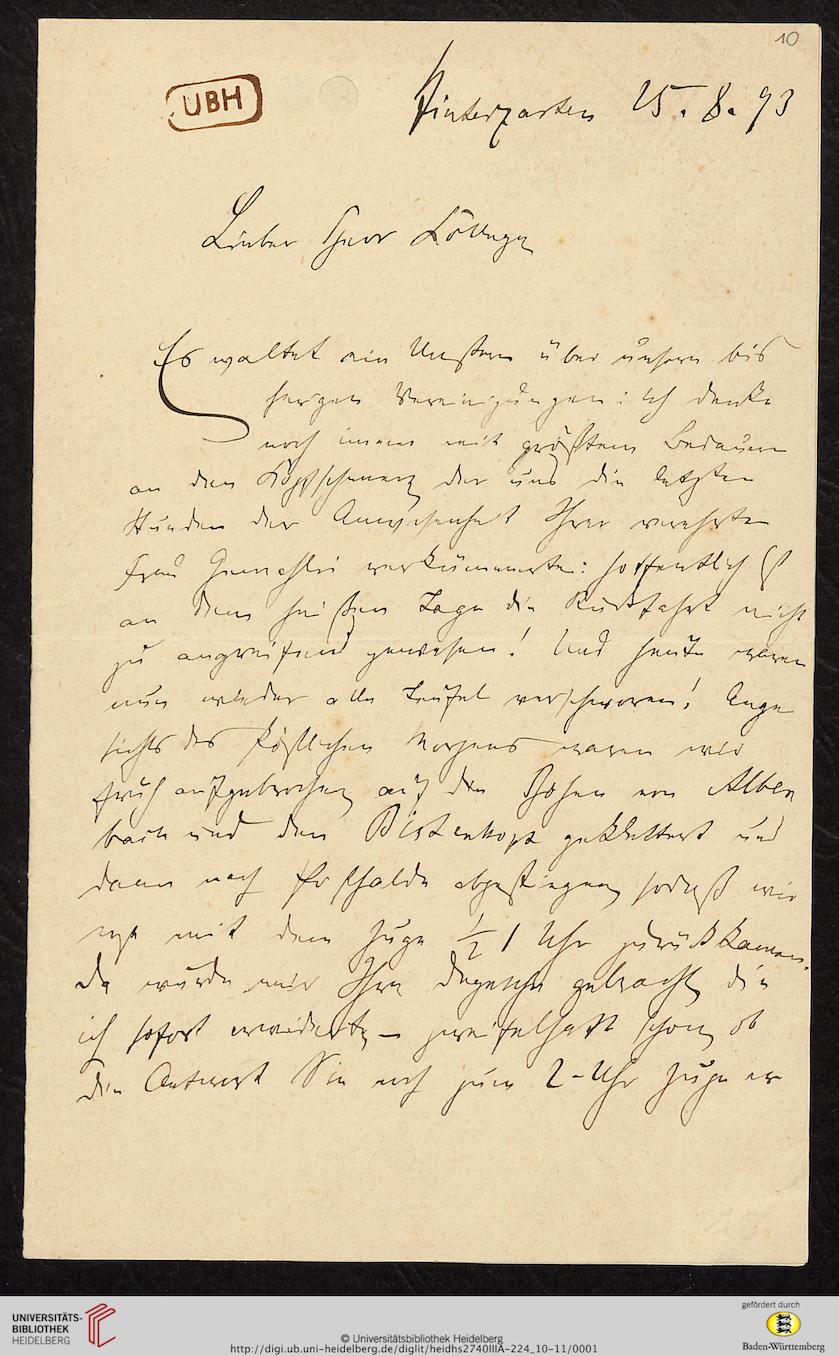 10
UBH
Hinterzarten 25. 8. 93
Lieber Herr College
Es waltet ein Unstern über unsern bis
herigen Vereinigungen: ich denke
noch immer mit größtem Bedauern
an den Kopfschmerz der uns die letzten
Stunden der Anwesenheit Ihrer verehrten
Frau Gemahlin verkümmerte: hoffentlich ist
an dem heißen Tage die Rückfahrt nicht
zu angreifend gewesen! Und heute waren
nun wieder alle Teufel verschworen! Ange
sichts des köstlichen Morgens waren wir
früh aufgebrochen auf den Höhen von Alben
bach und den Bistenkopf geklettert und
dann nach abgestiegen, sodaß wir
erst mit dem Zuge ½ 1 Uhr zurückkamen.
Da wurde mir Ihre Depesche gebracht, die
ich sofort erwiderte, – zweifelhaft schon, ob
die Antwort Sie noch zum 2-Uhr Zuge er
UNIVERSITÄTS-
BIBLIOTHEK
HEIDELBERG
© Universitätsbibliothek Heidelberg
http://digi.ub.uni-heidelberg.de/diglit/heidhs2740IIIA-224_10-11/0001
gefördert durch
Baden-Württemberg